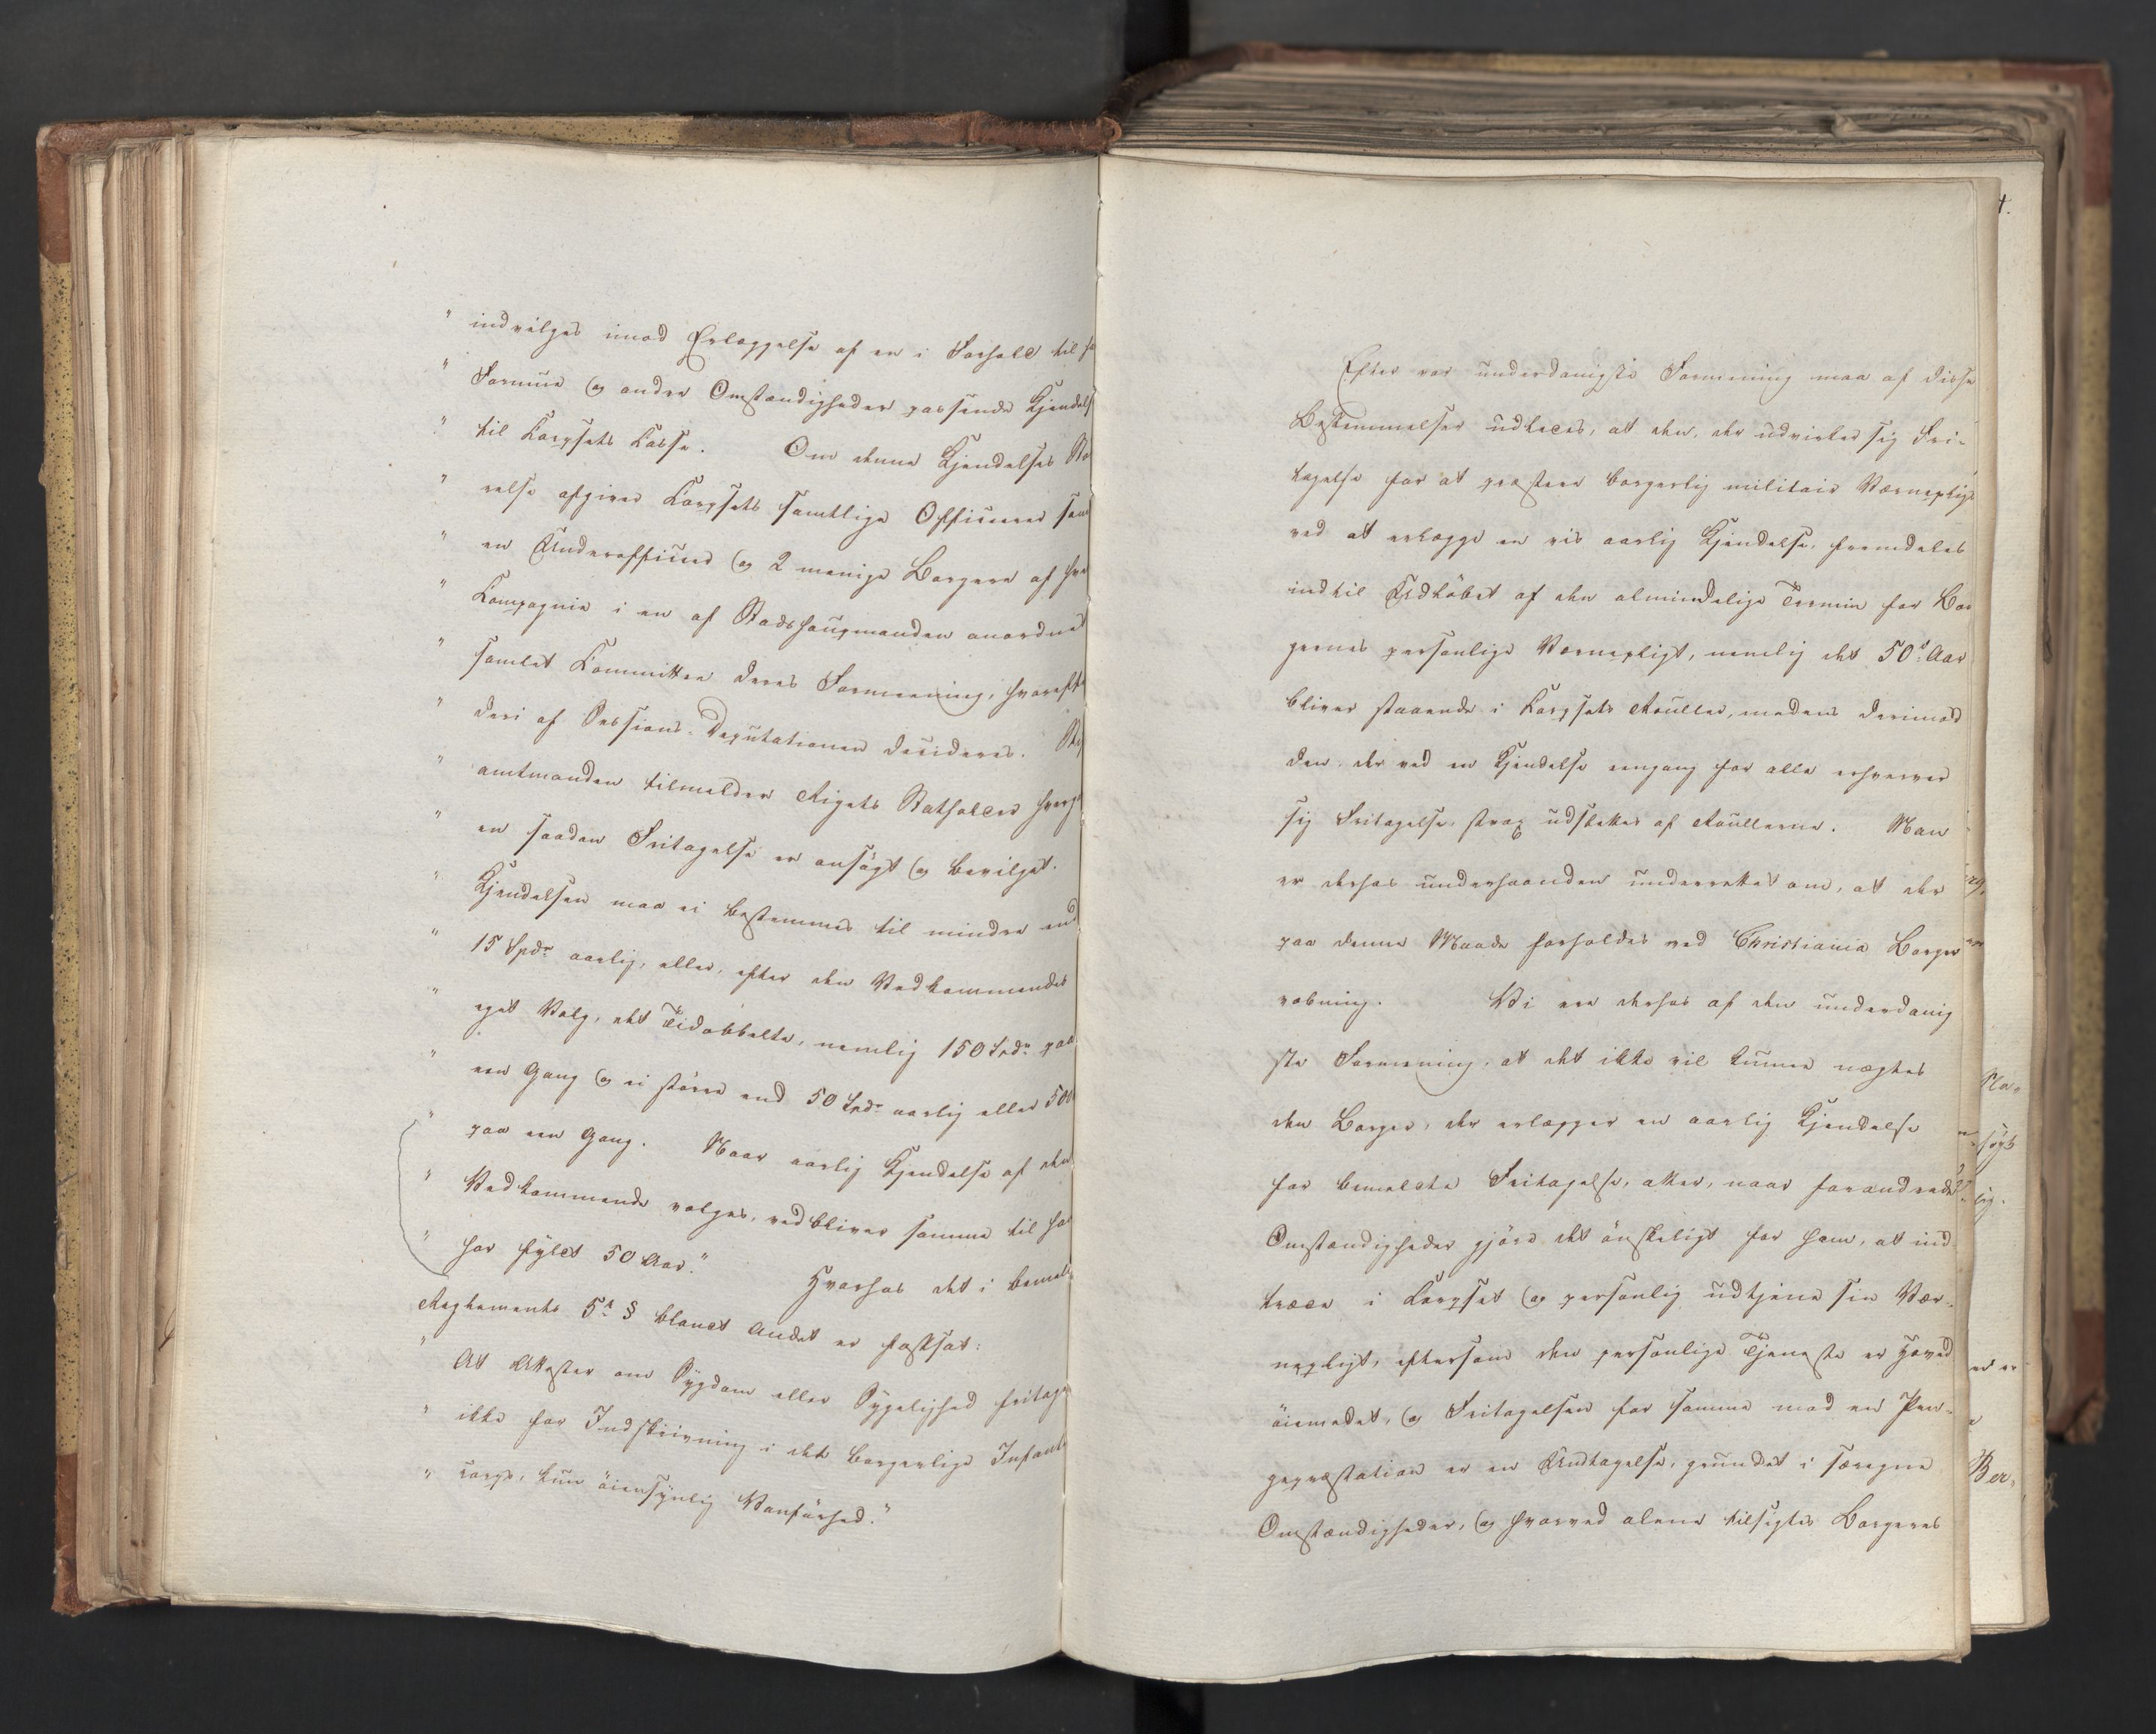 " indvilges imod Erlæggelse af en i Forhold til h
" Formue og andre Omstændigheder passende Kjendels
" til Korpsets Kasse. Om denne Kjendelses Stø
" relse afgiver Korpsets samtlige Officerer samt
" en Underofficer og 2 menige Borgere af hve
" Kompagnie i en af Stadshauptmanden anordnet
" samlet Committee deres Formeening, hvorefte
" deri af Sessions-Deputationen decideres. Sti
" amtmanden tilmelder Rigets Statholder hverg
" en saadan Fritagelse er ansøgt og bevilget.
" Kjendelsen maa ei bestemmes til mindre end
" 15 Spdr aarlig, eller, efter den Vedkommendes
" eget Valg, det Tidobbelte, nemlig 150 Spdr paa
" een Gang og ei større end 50 Spdr aarlig eller 500
" paa een Gang. Naar aarlig Kjendelse af den
" Vedkommende vælges, vedbliver samme til ha
" har fyldt 50 Aar." Hvorhos det i bemeld
Reglements 5t § blandt Andet er fastsat:
" At Attester om Sygdom eller Sygelighed fritage
" ikke for Indskrivning i det borgerlige Infant
" corps, kun øiensynlig Vanførhed."
Efter vor underdanigste Formening maa af disse
Bestemmelser udledes, at den, der udvirker sig Fri-
tagelse for at præstere borgerlig militair Værnepligt
ved at erlægge en vis aarlig Kjendelse, fremdeles
indtil Udløbet af den almindelige Termin for Bor
gernes personlige Værnepligt, nemlig det 50d Aar
bliver staaende i Korpsets Rouller, medens derimod
den, der ved en Kjendelse eengang for alle erhverver
sig Fritagelse, strax udslettes af Roullerne. Man
er derhos underhaanden underrettet om, at der
paa denne Maade forholdes ved Christiania Borger
væbning. Vi ere derhos af den underdanig
ste Formening, at det ikke vil kunne nægtes
den Borger, der erlægger en aarlig Kjendelse
for bemeldte Fritagelse, atter, naar forandrede
Omstændigheder gjøre det ønskeligt for ham, at ind
træde i Korpset og personlig udtjene sin Vær-
nepligt, eftersom den personlige Tjeneste er Hoved
øiemedet, og Fritagelsen for samme mod en Pen-
gepræstation er en Undtagelse, grundet i særegne
Omstændigheder, og hvorved alene tilsigtes Borgernes